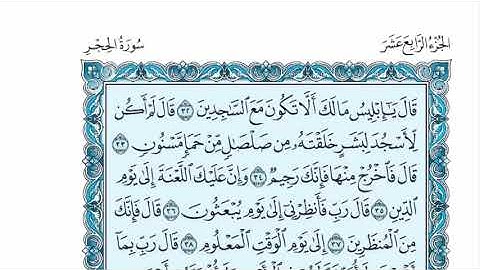 الجُزْءُ الرَّابِعَ عَشَرَ
سُورَةُ الحِجْرِ
قَالَ يَٰٓإِبۡلِيسُ مَا لَكَ أَلَّا تَكُونَ مَعَ ٱلسَّٰجِدِينَ ٣٢ قَالَ لَمۡ أَكُن
لِّأَسۡجُدَ لِبَشَرٍ خَلَقۡتَهُۥ مِن صَلۡصَٰلٖ مِّنۡ حَمَإٖ مَّسۡنُونٖ ٣٣
قَالَ فَٱخۡرُجۡ مِنۡهَا فَإِنَّكَ رَجِيمٞ ٣٤ وَإِنَّ عَلَيۡكَ ٱللَّعۡنَةَ إِلَىٰ يَوۡمِ
ٱلدِّينِ ٣٥ قَالَ رَبِّ فَأَنظِرۡنِيٓ إِلَىٰ يَوۡمِ يُبۡعَثُونَ ٣٦ قَالَ فَإِنَّكَ
مِنَ ٱلۡمُنظَرِينَ ٣٧ إِلَىٰ يَوۡمِ ٱلۡوَقۡتِ ٱلۡمَعۡلُومِ ٣٨ قَالَ رَبِّ بِمَآ